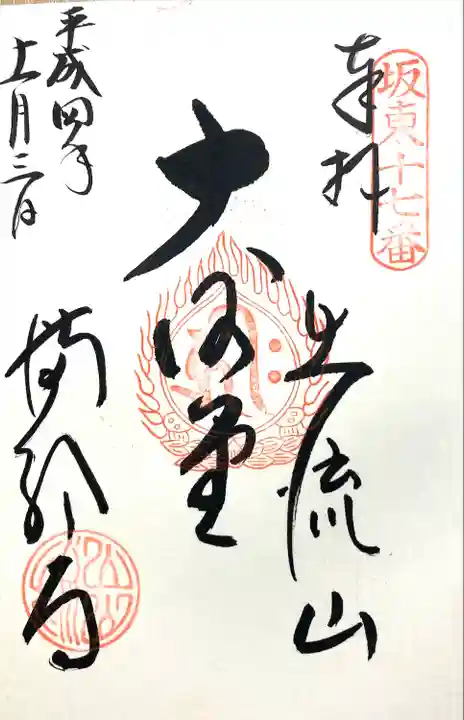 坂東十七番
奉拝
出流山
大悲堂
平成四年
十一月三日
満願寺